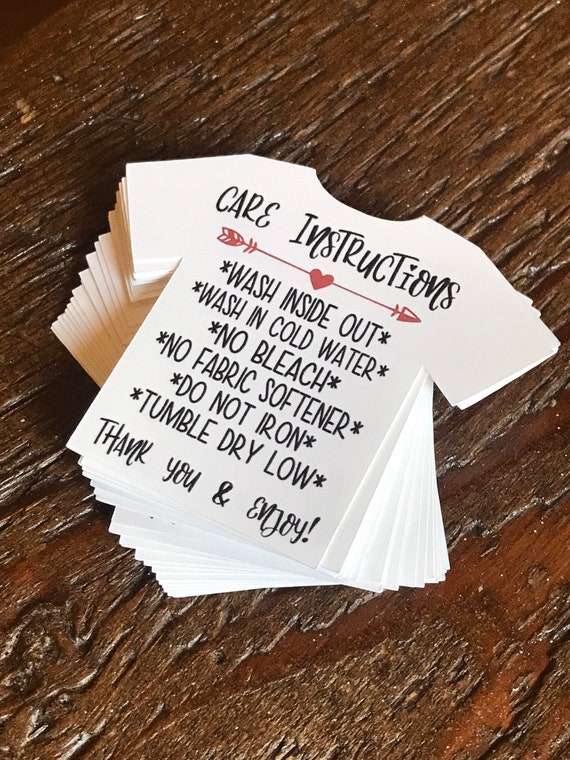 CARE INSTRUCTIONS
*WASH INSIDE OUT*
*WASH IN COLD WATER*
*NO BLEACH*
*NO FABRIC SOFTENER*
*DO NOT IRON*
*TUMBLE DRY LOW*
THANK YOU & ENJOY!